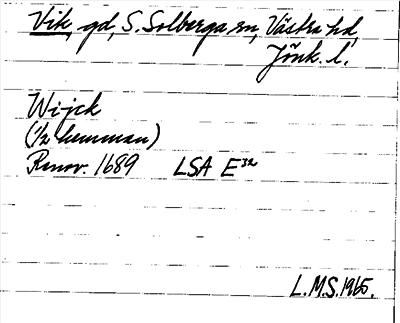 Vik, gd, S. Solberga sn, Västra hd,
Jönk. l.
Wijck
(1/2 hemman)
Renov. 1689 LSA E³²
L.M.S. 1965.